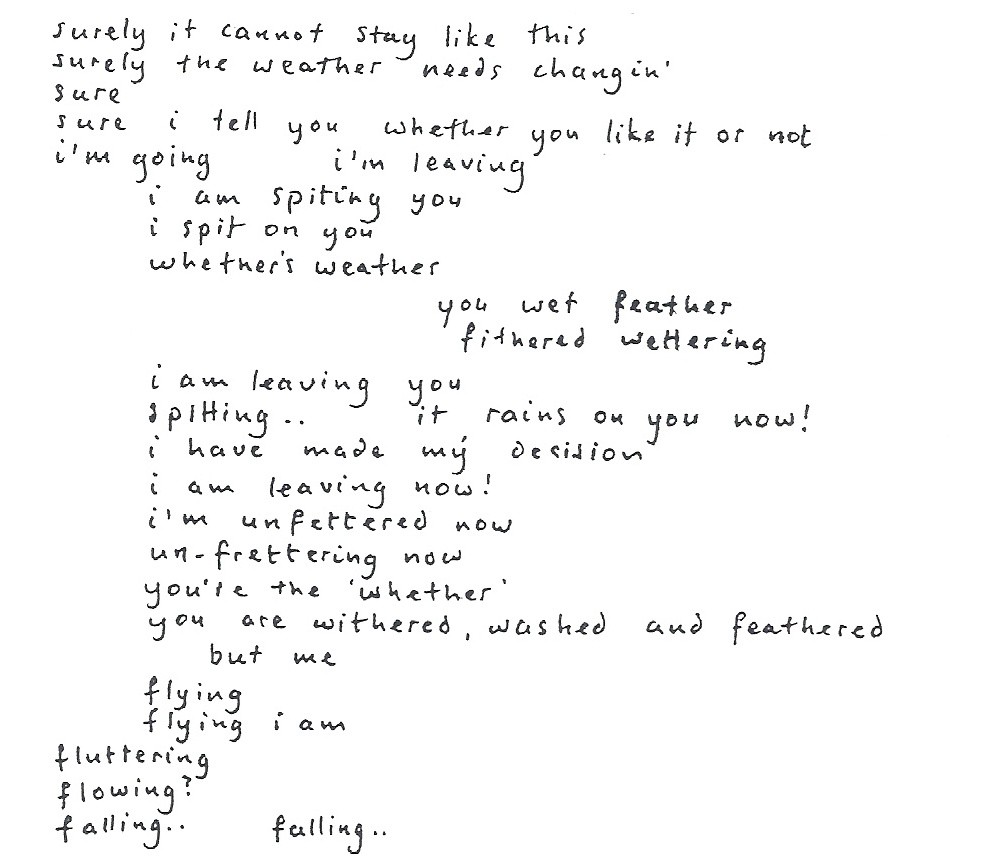 surely it cannot stay like this
surely the weather needs changin'
sure
sure i tell you whether you like it or not
i'm going i'm leaving
i am spiting you
i spit on you
whether's weather
you wet feather
fithered wettering
i am leaving you
spitting.. it rains on you now!
i have made my decision
i am leaving now!
i'm unfettered now
un-frettering now
you're the 'whether'
you are withered, washed and feathered
but me
flying
flying i am
fluttering
flowing?
falling.. falling..